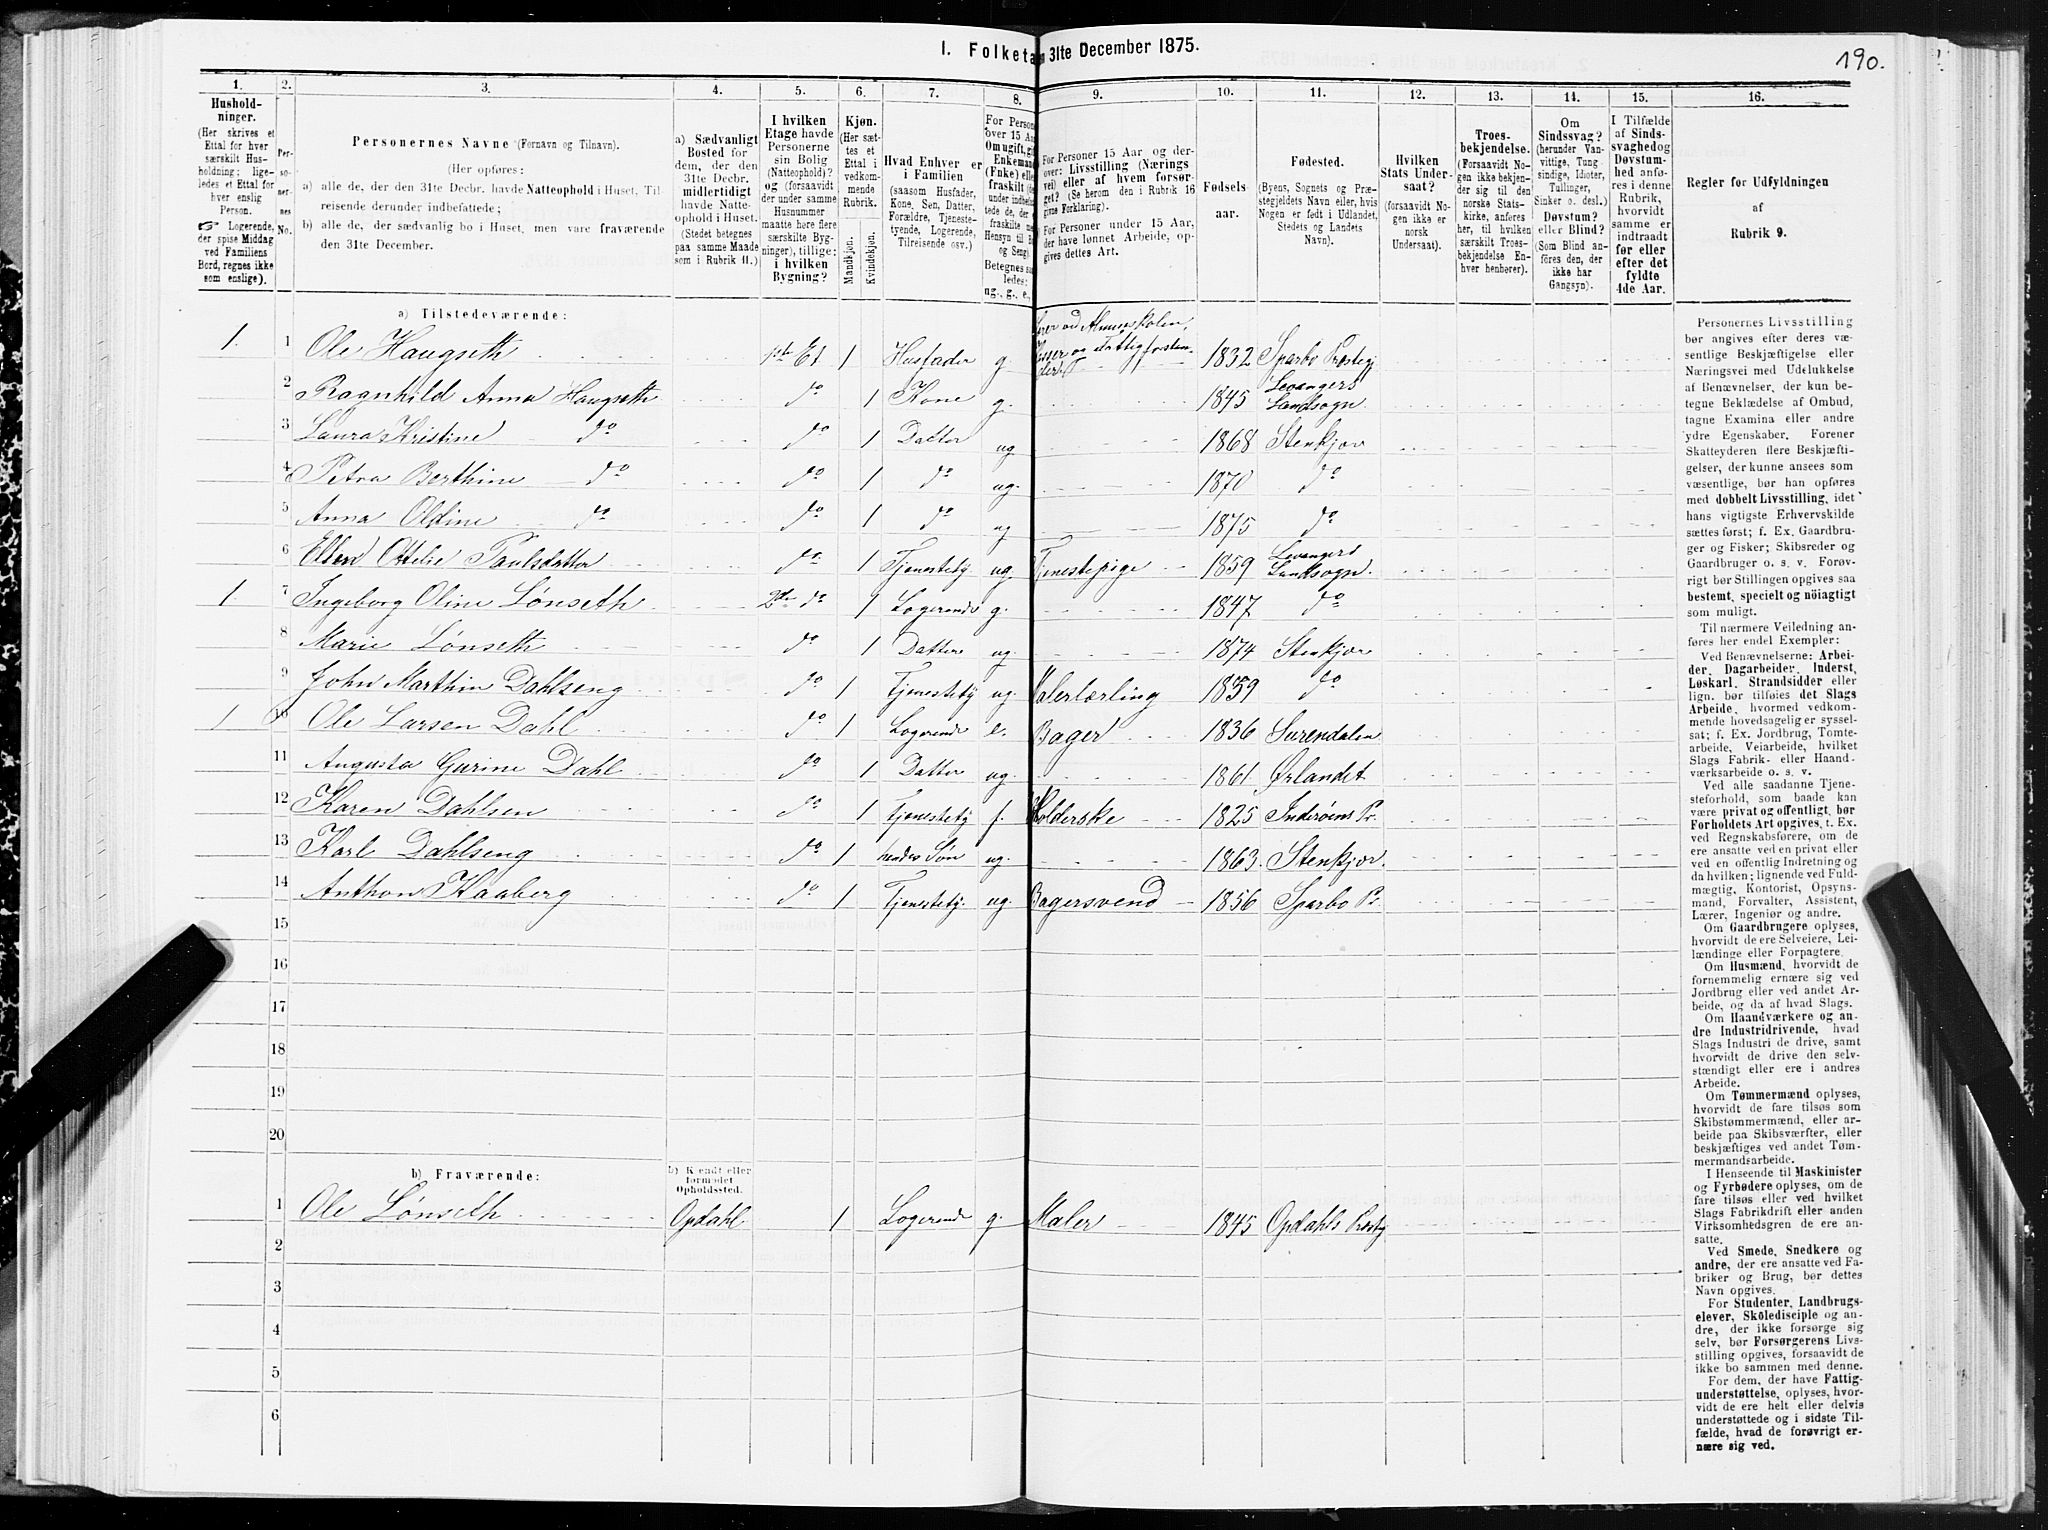 190.
1. Folketa 31te December 1875.
1. 2. 3. 4. 5. 6. 7. 8. 9. 10. 11. 12. 13. 14. 15. 16.
Hushold-
ninger.
(Her skrives et
Ettal for hver
særskilt Hus-
holdning; lige-
ledes et Ettal for
hver enslig
Person.
☞ Logerende,
der spise Middag
ved Familiens
Bord, regnes ikke
som enslige).
Per-
so-
ner-
nes
No.
Personernes Navne (Fornavn og Tilnavn).
(Her opføres:
a) alle de, der den 31te Decbr. havde Natteophold i Huset, Til-
reisende derunder indbefattede;
b) alle de, der sædvanlig bo i Huset, men vare fraværende
den 31te December.
a) Sædvanligt
Bosted for
dem, der den
31te Decbr.
midlertidigt
havde Natte-
ophold i Huset.
(Stedet betegnes
paa samme Maade
som i Rubrik 11.)
I hvilken
Etage havde
Personerne
sin Bolig
(Natteophold)?
og (forsaavidt
der under samme
Husnummer
maatte høre flere
særskilte Byg-
ninger), tillige:
i hvilken
Bygning?
Kjøn.
(Her sæt-
tes et
Ettal i
vedkom-
mende
Rubrik.
Mandkjøn.
Kvindekjøn.
Hvad Enhver er
i Familien
(saasom Husfader,
Kone, Søn, Datter,
Forældre, Tjeneste-
tyende, Logerende,
Tilreisende osv.)
For Person
over 15 Aa
Om ugift, gi
Enkeman
(Enke) ell
fraskilt
Betegnes sa
ledes:
ug., g., e.,
For Personer 15 Aar og der-
over: Livsstilling (Nærings
vei) eller af hvem forsør-
get? (Se herom den i Rubrik 16
givne Forklaring).
For Personer under 15 Aar,
der have lønnet Arbeide, op-
gives dettes Art.
Fødsels-
aar.
Fødested.
(Byens, Sognets og Præ-
stegjeldets Navn eller, hvis
Nogen er født i Udlandet,
Stedets og Landets
Navn).
Hvilken
Stats Under-
saat?
(forsaavidt No-
gen ikke er
norsk
Undersaat).
Troes-
bekjendelse.
(Forsaavidt No-
gen ikke bekjen-
der sig til den
norske Stats-
kirke, anføres
her, til hvilken
særskilt Troes-
bekjendelse En-
hver henhører).
Om
Sindssvag?
(herunder Van-
vittige, Tung-
sindige, Idioter,
Tullinger,
Sinker o. desl.)
Døvstum?
eller Blind?
(Som Blind an-
føres den, der
ikke har
Gangsyn).
I Tilfælde
af Sinds-
svaghed og
Døvstum-
hed anfø-
res i denne
Rubrik,
hvorvidt
samme er
indtraadt
før eller
efter det
fyldte
4de Aar.
Regler for Udfyldningen
af
Rubrik 9.
a) Tilstedeværende:
1 1 Ole Haugseth 1ste Et 1 Husfader g. 1832 Sparbo Præstegj
2 Ragnhild Anna Haugseth do 1 Kone g. 1845 Levangers Landsogn.
3 Laura Kristine do do 1 Datter ug 1868 Stenkjær
4 Petra Berthine do do 1 do ug. 1870 do
5 Anna Oldine do do 1 do ug 1875 do
6 Ellen Ottelie Paulsdatter do 1 Tjenestety ug. Tjenestepige 1859 Levangers Landsogn.
1 7 Ingeborg Oline Lønseth 2den do 1 Logerende g. 1847 do
8 Marie Lønseth do 1 Datter ug. 1874 Stenkjær
9 John Marthin Dahlseng do 1 Tjenestety ug. Malerlærling 1859 do
1 10 Ole Larsen Dahl do 1 Logerende e. Bager 1836 Surendalen
11 Augusta Gurine Dahl do 1 Datter ug. 1861 Ørlandet
12 Karen Dahlsen do 1 Tjenestety f. Holderske 1825 Inderøens Pr.
13 Karl Dahlseng do 1 hendes Søn ug. 1863. Stenkjær.
14 Anthon Haaberg do 1 Tjenestety. ug. Bagersvend 1856 Sparbo Pr.
15
16
17
18
19
20
b) Fraværende:
b) Kjendt eller
formodet
Opholdssted.
1 Ole Lønseth Opdahl 1 Logerende g. Maler 1845 Opdahls Præstgj
2
3
4
5
6
Personernes Livsstilling
bør angives efter deres væ-
sentlige Beskjæftigelse eller
Næringsvei med Udelukkelse
af Benævnelser, der kun be-
tegne Beklædelse af Ombud,
tagne Examina eller andre
ydre Egenskaber. Forener
Skatteyderen flere Beskjæfti-
gelser, der kunne ansees som
væsentlige, bør han opføres
med dobbelt Livsstilling, idet
hans vigtigste Erhvervskilde
sættes først; f. Ex. Gaardbru-
ger og Fisker; Skibsreder og
Gaardbruger o. s. v. Forøv-
rigt bør Stillingen opgives saa
bestemt, specielt og nöiagtigt
som muligt.
Til nærmere Veiledning an-
føres her endel Exempler:
Ved Benævnelserne: Arbei-
der, Dagarbeider, Inderst,
Løskarl, Strandsidder eller
lign. bør tilføies det Slags
Arbeide, hvormed vedkom-
mende hovedsagelig er syssel-
sat; f. Ex. Jordbrug, Tomte-
arbeide, Veiarbeide, hvilket
Slags Fabrik- eller Haand-
værksarbeide o. s. v.
Ved alle saadanne Tjene-
steforhold, som baade kan
være privat og offentligt, bør
Forholdets Art opgives, t. Ex.
ved Regnskabsførere, om de
ere ansatte ved en privat eller
ved en offentlig Indretning og
da hvilken; lignende ved Fuld-
mægtig, Kontorist, Opsyns-
mand, Forvalter, Assistent,
Lærer, Ingeniør og andre.
Om Gaardbrugere oplyses,
hvorvidt de ere Selveiere, Lei-
lændinge eller Forpagtere.
Om Husmænd, hvorvidt de
fornemmelig ernære sig ved
Jordbrug eller ved andet Ar-
beide, og da af hvad Slags.
Om Haandværkere og an-
dre Industridrivende, hvad
Slags Industri de drive, samt
hvorvidt de drive den selv-
stændigt eller ere i andres
Arbeide.
Om Tømmermænd oplyses,
hvorvidt de fare tilsøs som
Skibstømmermænd, eller ar-
beide paa Skibsværfter, eller
beskjæftiges ved andet Tøm-
mermandsarbeide.
I Henseende til Maskinister
og Fyrbødere oplyses, om de
fare tilsøs eller ved hvilket
Slags Fabrikdrift eller anden
Virksomhedsgren de ere an-
satte.
Ved Smede, Snedkere og
andre, der ere ansatte ved Fa-
briker og Brug, bør dettes
Navn opgives.
For Studenter, Landbrugs-
elever, Skoledisciple og an-
dre, der ikke forsørge sig
selv, bør Forsørgerens Livs-
stilling opgives, forsaavidt de
ikke bo sammen med denne.
For dem, der have Fattig-
understøttelse, oplyses, hvor-
vidt de ere helt eller delvis
understøttede og i sidste Til-
fælde, hvad de forøvrigt er-
nære sig ved.